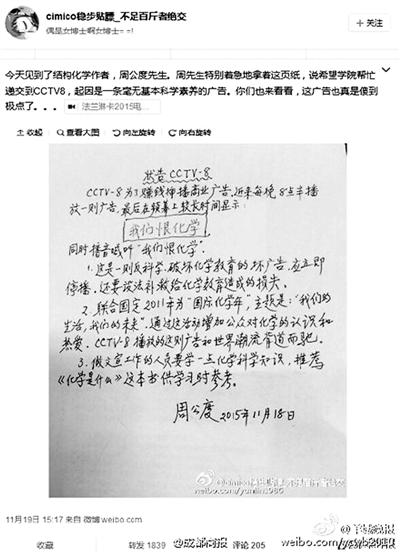 cimico稳步贴膘_不足百斤者绝交
偶是女博士啊女博士= =!
+关注
今天见到了结构化学作者，周公度先生。周先生特别着急地拿着这页纸，说希望学院帮忙
递交到CCTV8，起因是一条毫无基本科学素养的广告。你们也来看看，这广告也真是傻到
极点了。。。 法兰琳卡2015电...
收起 查看大图 向左旋转 向右旋转
状告CCTV-8
CCTV-8为了赚钱神播商业广告,近来每晚8点半播
放一则广告,最后在频幕上较长时间显示:
我们恨化学
同时播音喊叫"我们恨化学".
1.这是一则反科学,破坏化学教育的坏广告,应立即
停播,还要设法补救给化学教育造成的损失.
2.联合国定2011年为"国际化学年",主题是:"我们的
生活,我们的未来",通过这活动增加公众对化学的认识和
热爱.CCTV-8播放的这则广告和世界潮流背道而驰.
3.做文宣工作的人员要学一点化学科学知识,推荐
《化学是什么》这本书供学习时参考.
周公度
2015年11月18日
weibo.com/yumin1986
11月19日 15:17 来自 微博 weibo.com
收藏 转发 1839 评论 205
@成都商报
weibo.com/